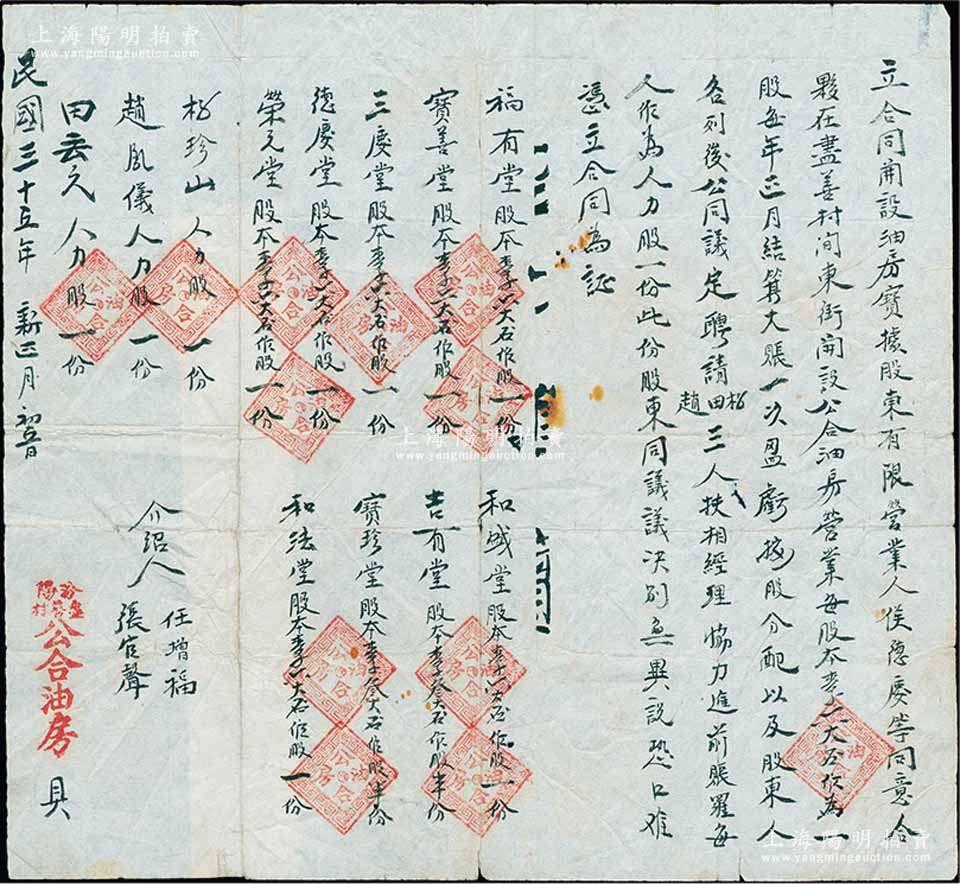 立合同開設油房寶據股東有限營業人侯德慶等同意合
夥在盡善村閆東街開設公合油房營業每股本麥子六大石作為一
股每年正月結算大賬一次盈虧按股分配以及股東人
各列後公同議定聘請松田趙三人扶相經理協力進前賬羅每
人作為人力股一份此份股東同議議決別無異說恐口难
憑立合同為証
福有堂股本麥子六大石作股一份
寶善堂股本麥子六大石作股一份
三慶堂股本麥子六大石作股一份
德慶堂股本麥子六大石作股一份
榮元堂股本麥子六大石作股一份
和盛堂股本麥子六大石作股一份
吉有堂股本麥子叁大石作股半份
寶珍堂股本麥子叁大石作股半份
和法堂股本麥子六大石作股一份
松珍山人力股一份
趙鳳儀人力股一份
田雲久人力股一份
介紹人
任增福
張官聲
民國三十五年新正月初
公合油房
具
公合油房
上海陽明拍賣
www.yangmingauction.com